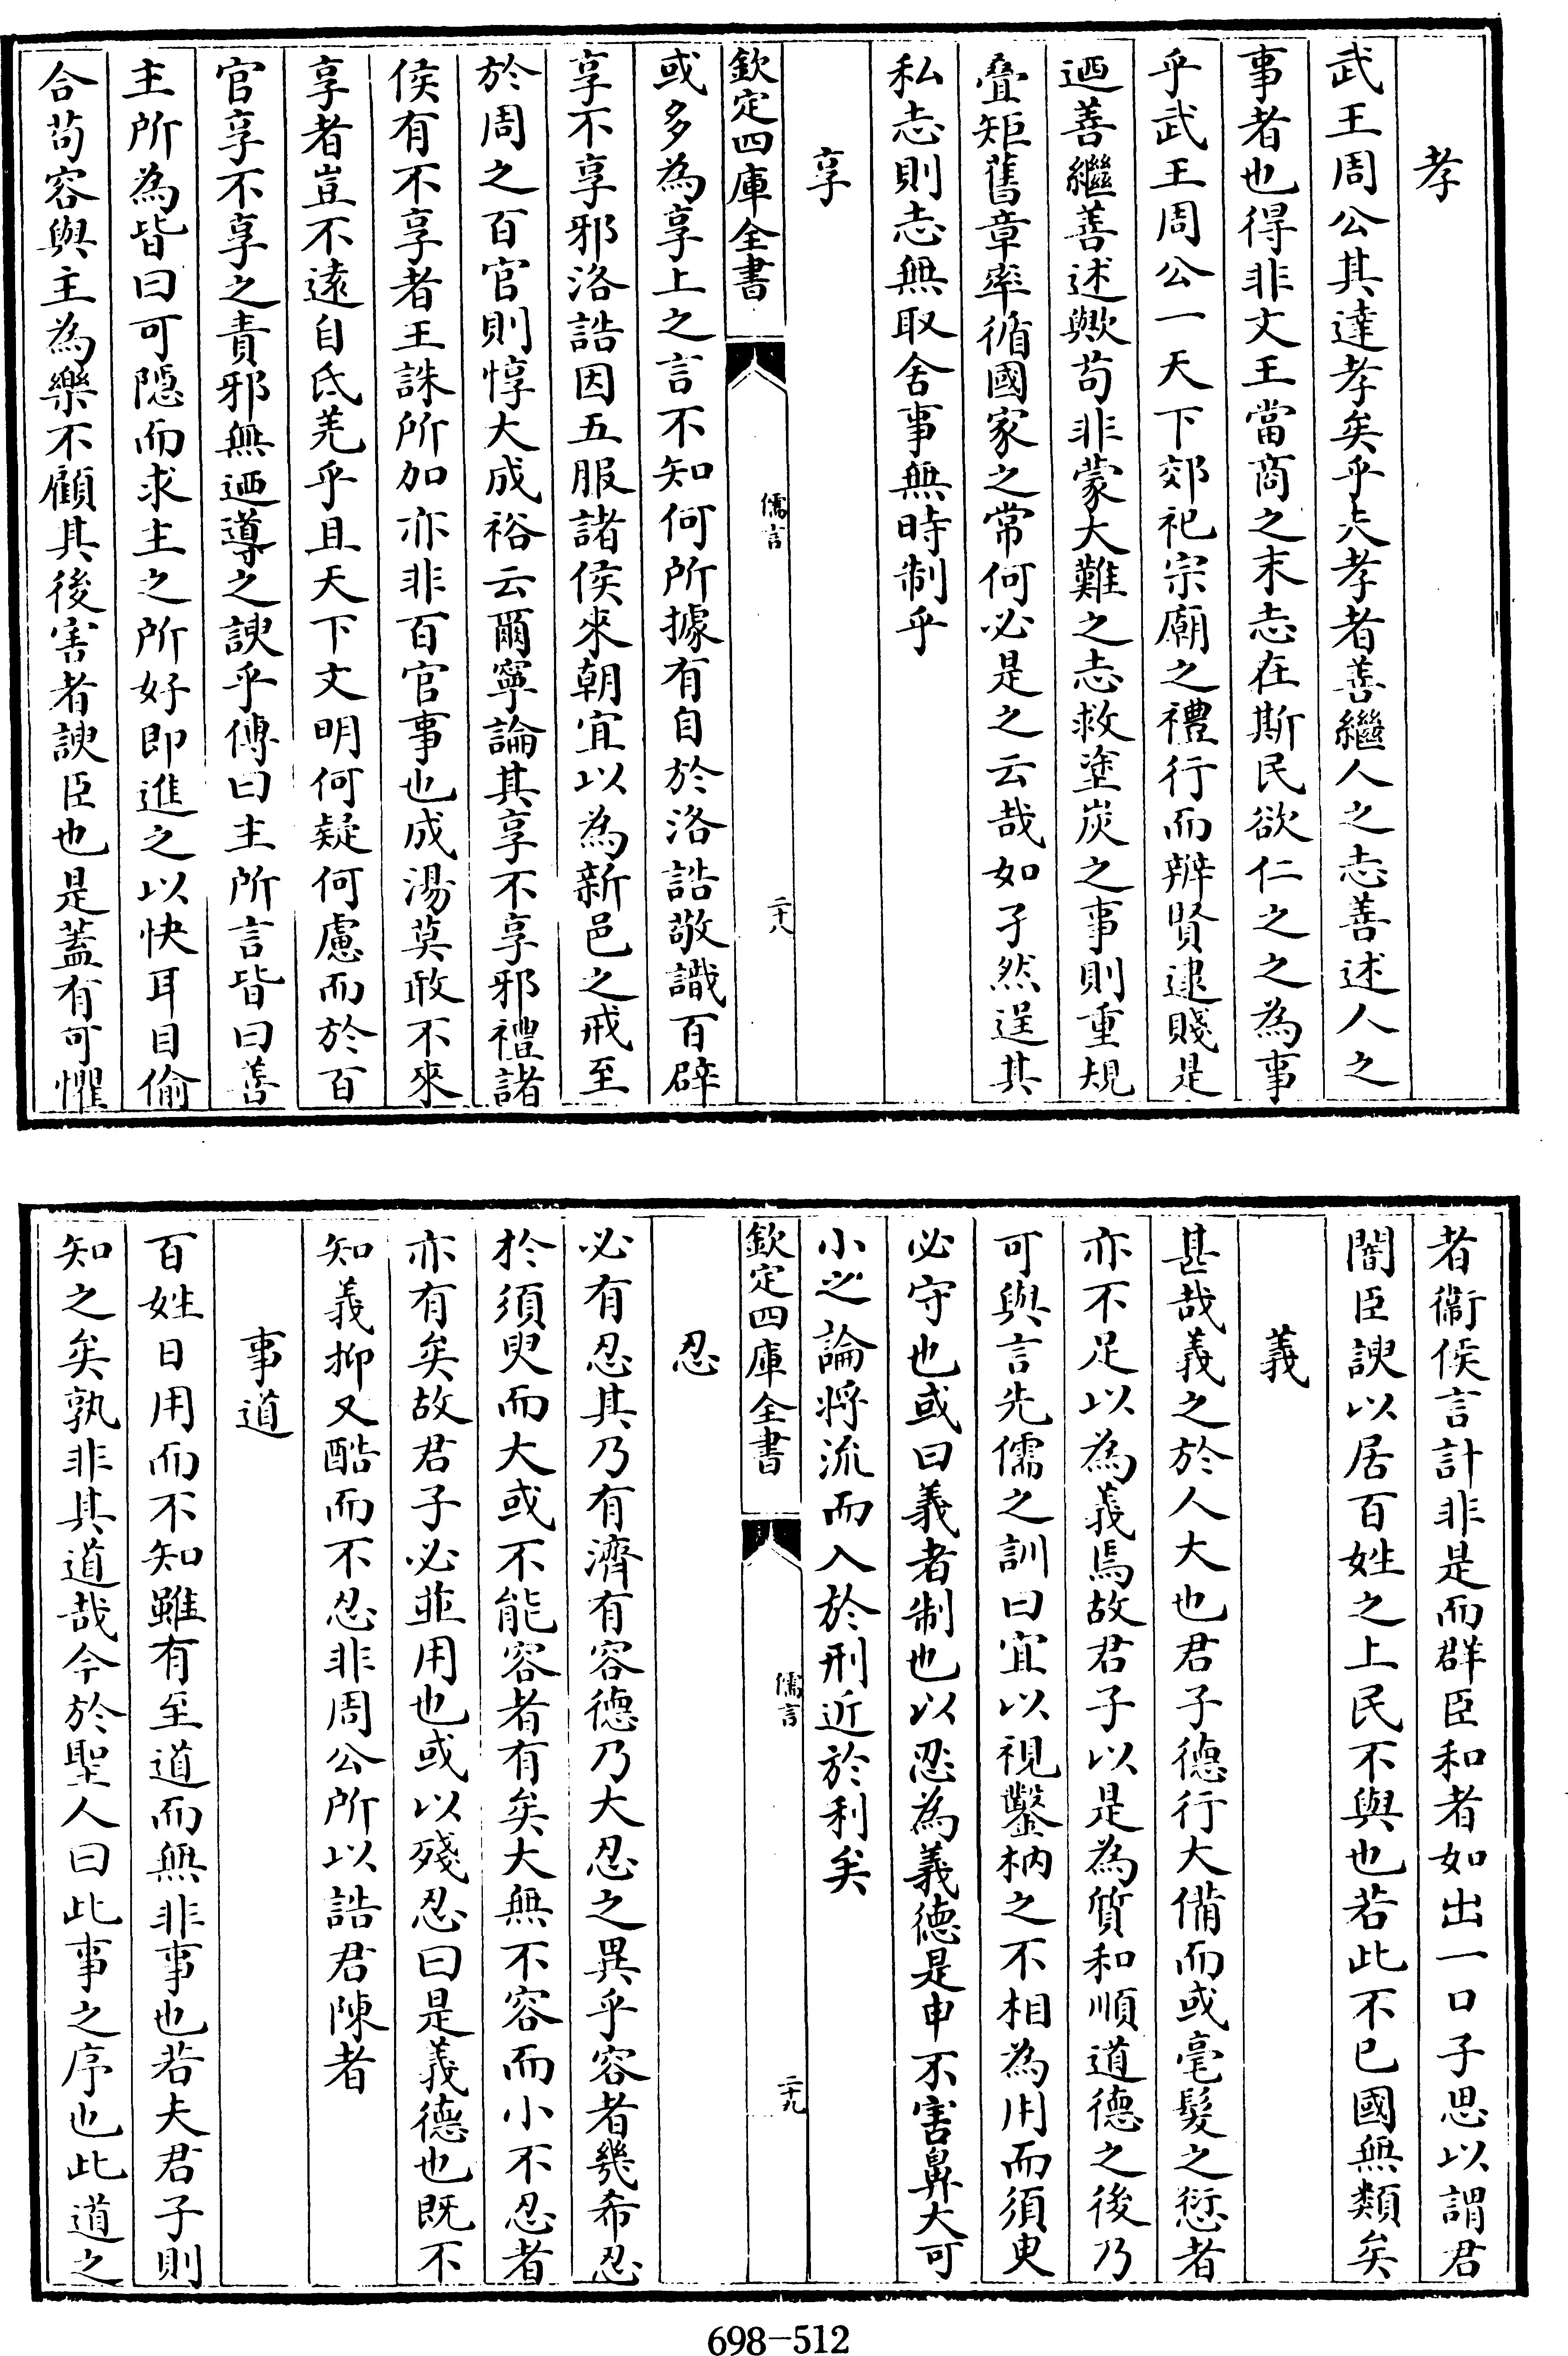 孝
武王周公其達孝矣乎夫孝者善繼人之志善述人之
事者也得非文王當商之末志在斯民欲仁之之為事
乎武王周公一天下郊祀宗廟之禮行而辨賢逮賤是
迺善繼善述歟苟非蒙大難之志救塗炭之事則重規
疊矩舊章率循國家之常何必是之云哉如孑然逞其
私志則志無取舍事無時制乎
享
欽定四庫全書
儒言
二十八
或多為享上之言不知何所據有自於洛誥敬識百辟
享不享邪洛誥因五服諸侯來朝宜以為新邑之戒至
於周之百官則惇大成裕云爾寧論其享不享邪禮諸
侯有不享者王誅所加亦非百官事也成湯莫敢不來
享者豈不遠自氐羌乎且天下文明何疑何慮而於百
官享不享之責邪無迺導之諛乎傳曰主所言皆曰善
主所為皆曰可隱而求主之所好即進之以快耳目偷
合苟容與主為樂不顧其後害者諛臣也是蓋有可懼
者衞侯言計非是而群臣和者如出一口子思以謂君
闇臣諛以居百姓之上民不與也若此不已國無類矣
義
甚哉義之於人大也君子德行大備而或毫髮之愆者
亦不足以為義焉故君子以是為質和順道德之後乃
可與言先儒之訓曰宜以視鑿枘之不相為用而須臾
必守也或曰義者制也以忍為義德是申不害鼻大可
小之論將流而入於刑近於利矣
欽定四庫全書
儒言
二十九
忍
必有忍其乃有濟有容德乃大忍之異乎容者幾希忍
於須臾而大或不能容者有矣大無不容而小不忍者
亦有矣故君子必並用也或以殘忍曰是義德也既不
知義抑又酷而不忍非周公所以誥君陳者
事道
百姓日用而不知雖有至道而無非事也若夫君子則
知之矣孰非其道哉今於聖人曰此事之序也此道之
698-512